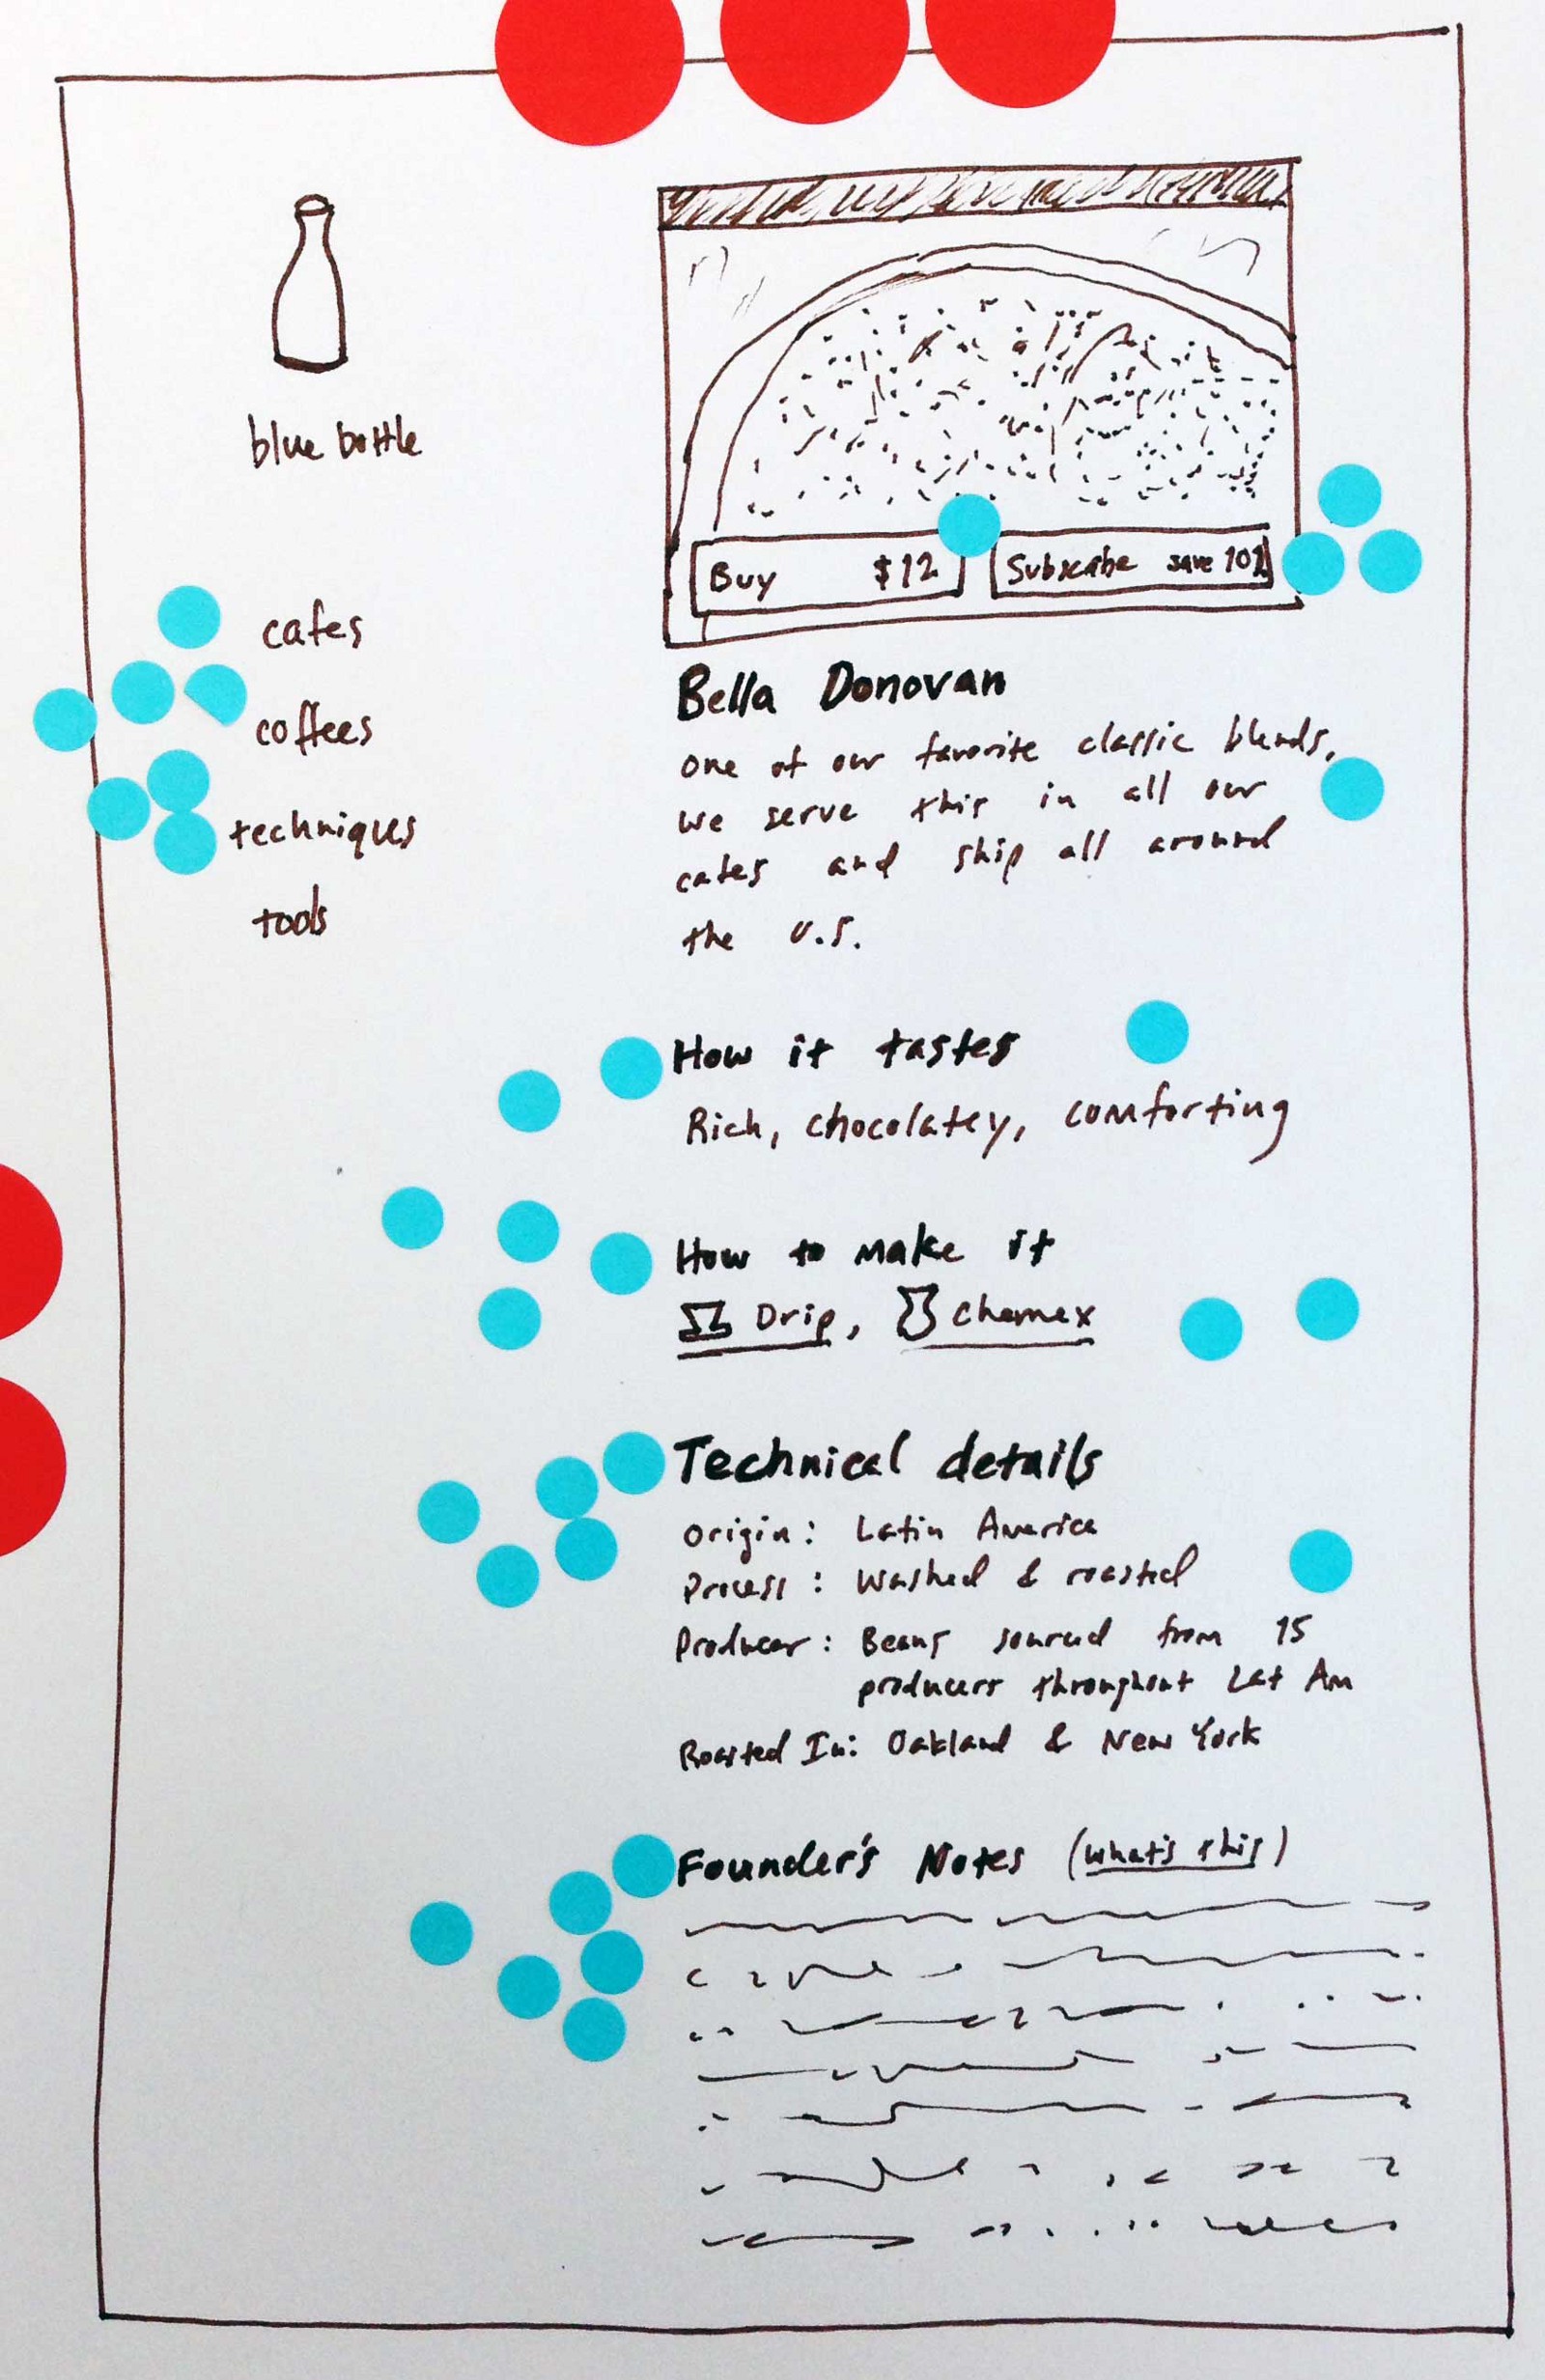 blue bottle
cafes
coffees
techniques
tools
Buy $12
Subscribe save 10%
Bella Donovan
one of our favorite classic blends,
we serve this in all our
cafes and ship all around
the U.S.
How it tastes
Rich, chocolatey, comforting
How to make it
Drip, Chemex
Technical details
Origin: Latin America
Process: Washed & roasted
Producer: Beans sourced from 15
producers throughout Lat Am
Roasted In: Oakland & New York
Founder's Notes (what's this)